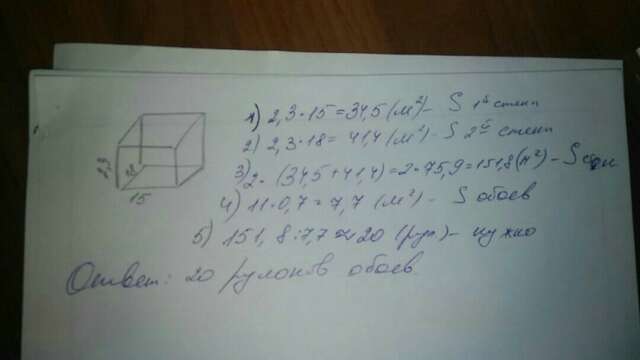 1) 2,3·15=34,5 (м²)- S 1й стены
2) 2,3·18=41,4 (м²)- S 2й стены
3) 2·(34,5+41,4)=2·75,9=151,8(м²)-S стен
4) 11·0,7=7,7 (м²)- S обоев
5) 151,8:7,7≈20 (рул)- нужно
2,3
18
15
Ответ: 20 рулонов обоев.